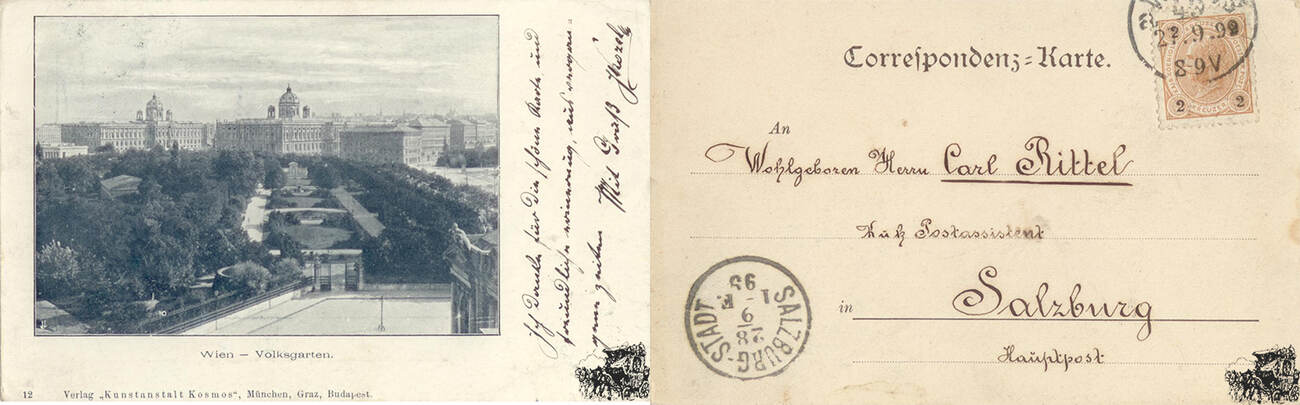 Ich danke für die schöne Karte und
freundliche erinnerung, aus vergan-
genen zeiten Mit Gruß
Wien — Volksgarten.
12 Verlag „Kunstanstalt Kosmos“, München, Graz, Budapest.
Correſpondenz-Karte.
9.99
8-9V
2 2
An
Wohlgeboren Herrn Carl Rittel
K u k Postassistent
in Salzburg
Hauptpost
SALZBURG-STADT
28
9